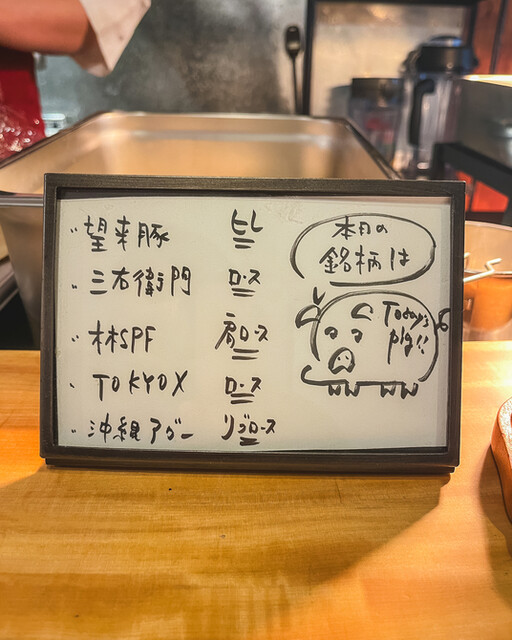 ・望来豚 ヒレ
・三右衛門 ロース
・林SPF 肩ロース
・TOKYO X ロース
・沖縄アグー リブロース
本日の
銘柄は
Today's
pig!!